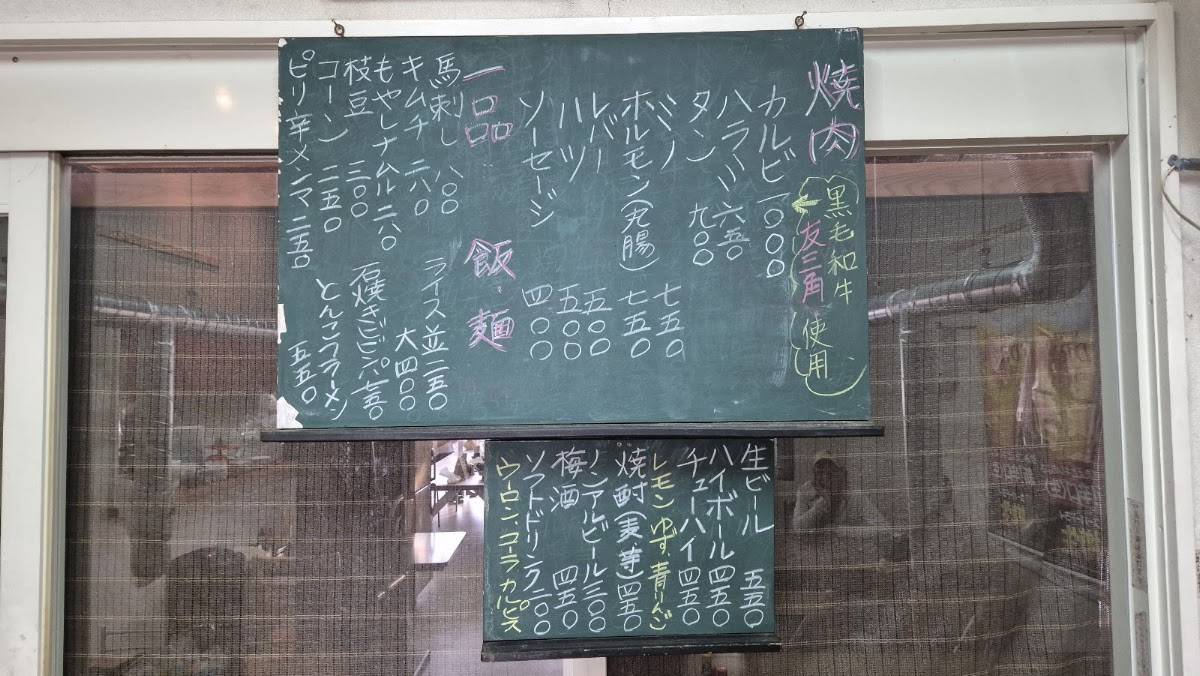 焼肉
黒毛和牛
友三角使用
カルビ 一〇〇〇
ハラミ 六五〇
タン 九〇〇
ミノ 七五〇
ホルモン(丸腸) 七五〇
レバー 五〇〇
ハツ 五〇〇
ソーセージ 四〇〇
一品
馬刺し 八〇〇
キムチ 二八〇
もやしナムル 二八〇
枝豆 三〇〇
コーン 二五〇
ピリ辛メンマ 二五〇
飯・麺
ライス 並二五〇
大四〇〇
石焼きビビンバ七五〇
とんこつラーメン
五五〇
生ビール 五五〇
ハイボール 四五〇
チューハイ 四五〇
レモン ゆず、青りんご
焼酎(麦、芋) 四五〇
ノンアルビール 三〇〇
梅酒 四五〇
ソフトドリンク 二〇〇
ウーロン、コーラ カルピス